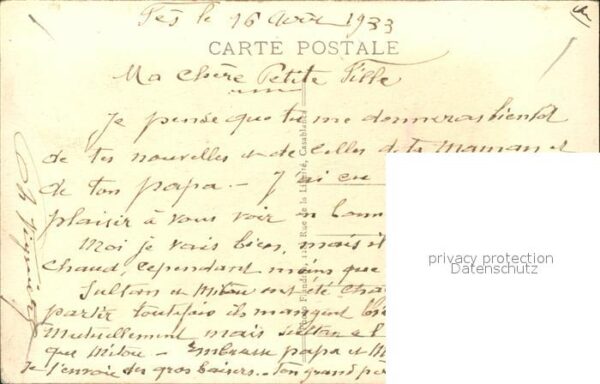 Fès le 16 Avril 1933
CARTE POSTALE
Ma Chère Petite Fille
Je pense que tu me donneras bientot
de tes nouvelles et de celles de ta Maman et
de ton papa - J'ai eu
plaisir à vous voir en bonn
Moi je vais bien, mais il
Chaud, cependant moins que
Sultan et Mitou ont été
partir toutefois ils mangent
Mutuellement mais Sultan a
que Mitou - Embrasse papa et
Je t'envoie des gros baisers. Ton grand
Rue de la Liberté, Casablanca
privacy protection
Datenschutz